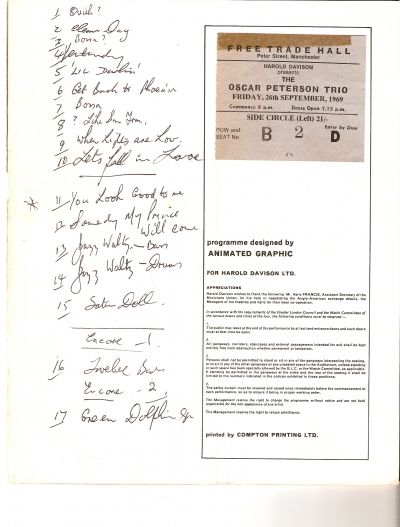 1 Quick?
2 Clear Day
3 Bossa?
4 Yesterday
5 'Lil Darlin'
6 Get Back to Phoenix
7 Bossa
8 ? Like Someone
9 When Lights are Low.
10 Let's fall in Love
* 11 You Look Good to me
12 Someday My Prince
Will Come
13 Jazz Waltz - Bass
14 Jazz Waltz - Drums
15 Satin Doll.
Encore - 1
16
Encore - 2
17 Green Dolphin St
FREE TRADE HALL
Peter Street, Manchester
HAROLD DAVISON
presents
THE
OSCAR PETERSON TRIO
FRIDAY, 26th SEPTEMBER, 1969
Commence 8 p.m. Doors Open 7.15 p.m.
SIDE CIRCLE (Left) 21/-
ROW and
SEAT No. B 2
Enter by Door
D
programme designed by
ANIMATED GRAPHIC
FOR HAROLD DAVISON LTD.
APPRECIATIONS
Harold Davison wishes to thank the following: Mr. Harry FRANCIS, Assistant Secretary of the
Musicians Union, for his help in negotiating the Anglo-American exchange details; the
Managers of the theatres and Halls for their keen co-operation.
In accordance with the requirements of the Greater London Council and the Watch Committees of
the various towns and cities of the tour, the following conditions must be observed:—
1.
The public may leave at the end of the performance by all exit and entrance doors and such doors
must at that time be open.
2.
All gangways, corridors, staircases and external passageways intended for exit shall be kept
entirely free from obstruction whether permanent or temporary.
3.
Persons shall not be permitted to stand or sit in any of the gangways intersecting the seating,
or to sit in any of the other gangways or any unseated space in the Auditorium, unless standing
in such space has been specially allowed by the G.L.C. or the Watch Committee, as applicable.
If standing be permitted in the gangways at the sides and the rear of the seating it shall be
limited to the numbers indicated in the notices exhibited in those positions.
4.
The safety curtain must be lowered and raised once immediately before the commencement
of each performance, so as to ensure it being in proper working order.
The Management reserve the right to change the programme without notice and are not held
responsible for the non-appearance of any artist.
The Management reserve the right to refuse admittance.
printed by COMPTON PRINTING LTD.